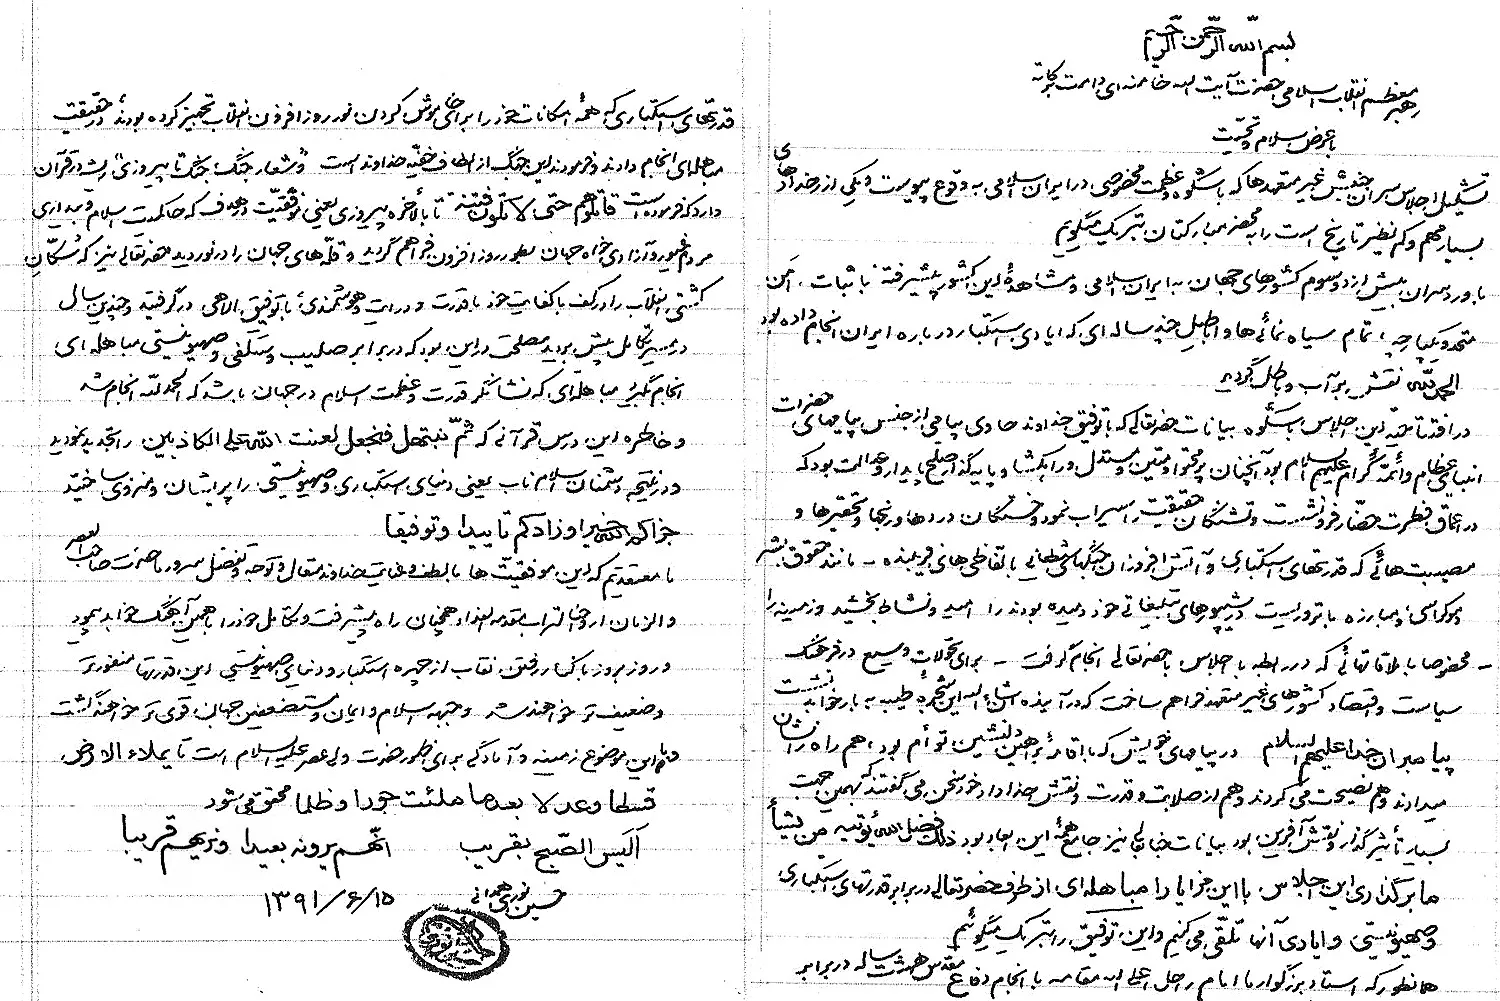 بسم الله الرّحمن الرّحیم
رهبر معظم انقلاب اسلامی حضرت آیت الله خامنه‌ای دامت برکاته
با عرض سلام و تحیّت
تشکیل اجلاس سران جنبش غیر متعهدها که با شکوه و عظمت مخصوصی در ایران اسلامی به وقوع پیوست و یکی از رخدادهای
بسیار مهم و کم نظیر تاریخ است را به محضر مبارکتان تبریک میگویم
با ورود سران بیش از دو سوم کشورهای جهان به ایران اسلامی و مشاهدهٔ این کشور پیشرفته، با ثبات، امن
متحد و یکپارچه، تمام سیاه نمائی‌ها و اباطیل چند ساله‌ای که ایادی استکبار درباره ایران انجام داده بود
الحمدلله نقش بر آب و باطل گردید
در افتتاحیّه این اجلاس باشکوه بیانات حضرتعالی که با توفیق خداوند حاوی پیامی از جنس پیامهای حضرات
انبیاءِ عظام و ائمّه گرام علیهم السلام بود آنچنان پر محتوا و متین و مستدل و راهگشا و پایه گذار صلح پایدار و عدالت بود که
در اعماق فطرت حضّار فرو نشست و تشنگان حقیقت را سیراب نمود و خستگان دردها و رنجها و تحقیرها و
مصیبت هائی که قدرتهای استکباری و آتش افروزان جنگهای شیطانی با لفاظی های فریبنده - مانند حقوق بشر
دموکراسی، و مبارزه با تروریست در شیپورهای تبلیغاتی خود دمیده بودند را امید و نشاط بخشید و زمینه را
- مخصوصا با ملاقاتهائی که در رابطه با اجلاس، با حضرتعالی انجام گرفت - برای تحوّلات وسیع در فرهنگ
سیاست و اقتصاد کشورهای غیر متعهد فراهم ساخت که در آینده انشاءالله این شجرهٔ طیبه به بار خواهد نشست
پیامبران خدا علیهم السلام در پیامهای خویش که با آقائی و براهین دلنشین توأم بود، هم راه را نشان
میدادند و هم نصیحت می‌کردند و هم از صلابت و قدرت و نقش خدادادِ خود سخن می گفتند که بهمین جهت
بسیار تأثیر گذار و نقش آفرین بود بیانات جنابعالی نیز جامع همهٔ این ابعاد بود ذلک فضل الله یؤتیه من یشآء
ما برگذاری این اجلاس، با این مزایا را مباهله‌ای از طرف حضرتعالی در برابر قدرتهای استکباری
و صهیونیستی و ایادی آنها تلقّی می‌کنیم و این توفیق را تبریک میگوئیم
همانطور که استاد بزرگوار ما امام راحل اعلی الله مقامه با انجام دفاع مقدس هشت ساله در برابر
قدرتهای استکباری که همهٔ امکانات خود را برای خاموش کردن نور روز افزون انقلاب تجهیز کرده بودند، در حقیقت
مباهله‌ای انجام دادند و فرمودند این جنگ از الطاف خفیّه خداوند است و شعار جنگ، جنگ تا پیروزی ریشه در قرآن
دارد که فرموده است قاتلوهم حتی لا تکون فتنة تا بالأخره پیروزی یعنی موفقیّت در هدف که حاکمیت اسلام و بیداری
مردم غیور و آزادی خواه جهان بطور روز افزون فراهم گردید و قلّه های جهان را در نوردید حضرتعالی نیز که سُکّان
کشتی انقلاب را در کف با کفایت خود با قدرت و درایت و هوشمندی، با توفیق الهی در گرفتید و چندین سال
در مسیر تکامل پیش بردید مصلحت در این بود که در برابر صلیب و سلفی و صهیونیستی مباهله‌ای
انجام گیرد مباهله‌ای که نشانگر قدرت و عظمت اسلام در جهان باشد که الحمد للّه انجام شد
و خاطره این درس قرآنی که ثمّ نبتهل فنجعل لعنت اللّه علی الکاذبین را تجدید نمودید
و در نتیجه دشمنان اسلام ناب یعنی دنیای استکباری و صهیونیستی را پریشان و منزوی ساختید
جزاکم الله خیرا و زادکم تاییدا و توفیقا
ما معتقدیم که این موفقیت ها با لطف و عنایت خداوند متعال و توجه و تفضل سرور ما حضرت صاحب العصر
و الزمان ارواحنا لتراب مقدمه الفداء همچنان راه پیشرفت و تکامل خود را با همین آهنگ خواهد پیمود
و روز بروز با کنار رفتن نقاب از چهره استکبار و دنیای صهیونیستی این قدرتها منفورتر
و ضعیف تر خواهند شد و جبهه اسلام و ایمان و مستضعفین جهان قوی تر خواهند گشت
و این موضوع زمینه و آمادگی برای ظهور حضرت ولی عصر علیه السلام است تا یملاء الارض
قسطا و عدلا بعدما ملئت جورا و ظلما محقق می شود
الیس الصّبح بقریب انّهم یرونه بعیدا و نریهم قریبا
حسین نوری همدانی
۱۳۹۱/۶/۱۵